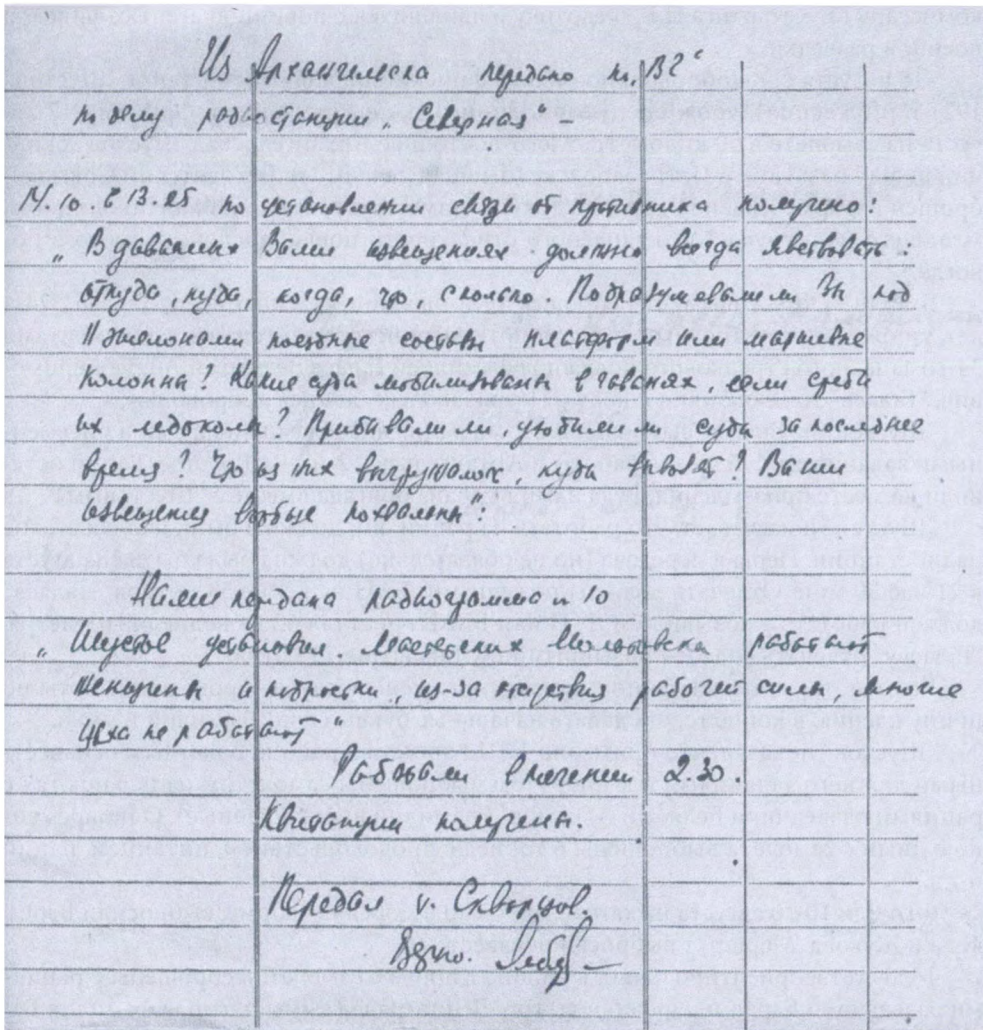 Из Архангельска передано по „ВЧ“
по делу радиостанции „Северная“ –
14.10. в 13.05 по установлении связи от противника получено:
„В даваемых Вами извещениях должно всегда явствовать:
откуда, куда, когда, что, сколько. Подразумевали ли Вы под
эшелонами поездные составы платформ или маршевые
колонны? Какие суда мобилизованы в гаванях, если среди
их ледоколы? Прибывали ли, убыли ли суда за последнее
время? Что из них выгружалось, куда Ваши
извещения вообще похвальны“.
Нами передана радиограмма № 10
„Шустов установил. Мастерских Молотовска работают
женщины и подростки, из-за отсутствия рабочей силы, многие
цеха не работают“
Работали в течении 2.30.
Квитанции получены.
Передал т. Скворцов.
Верно.